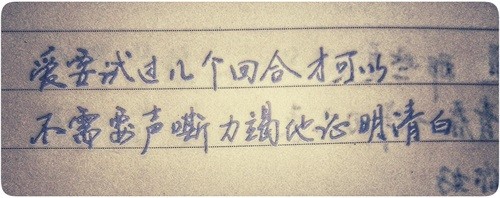 爱要试过几个回合才可以
不需要声嘶力竭地证明清白